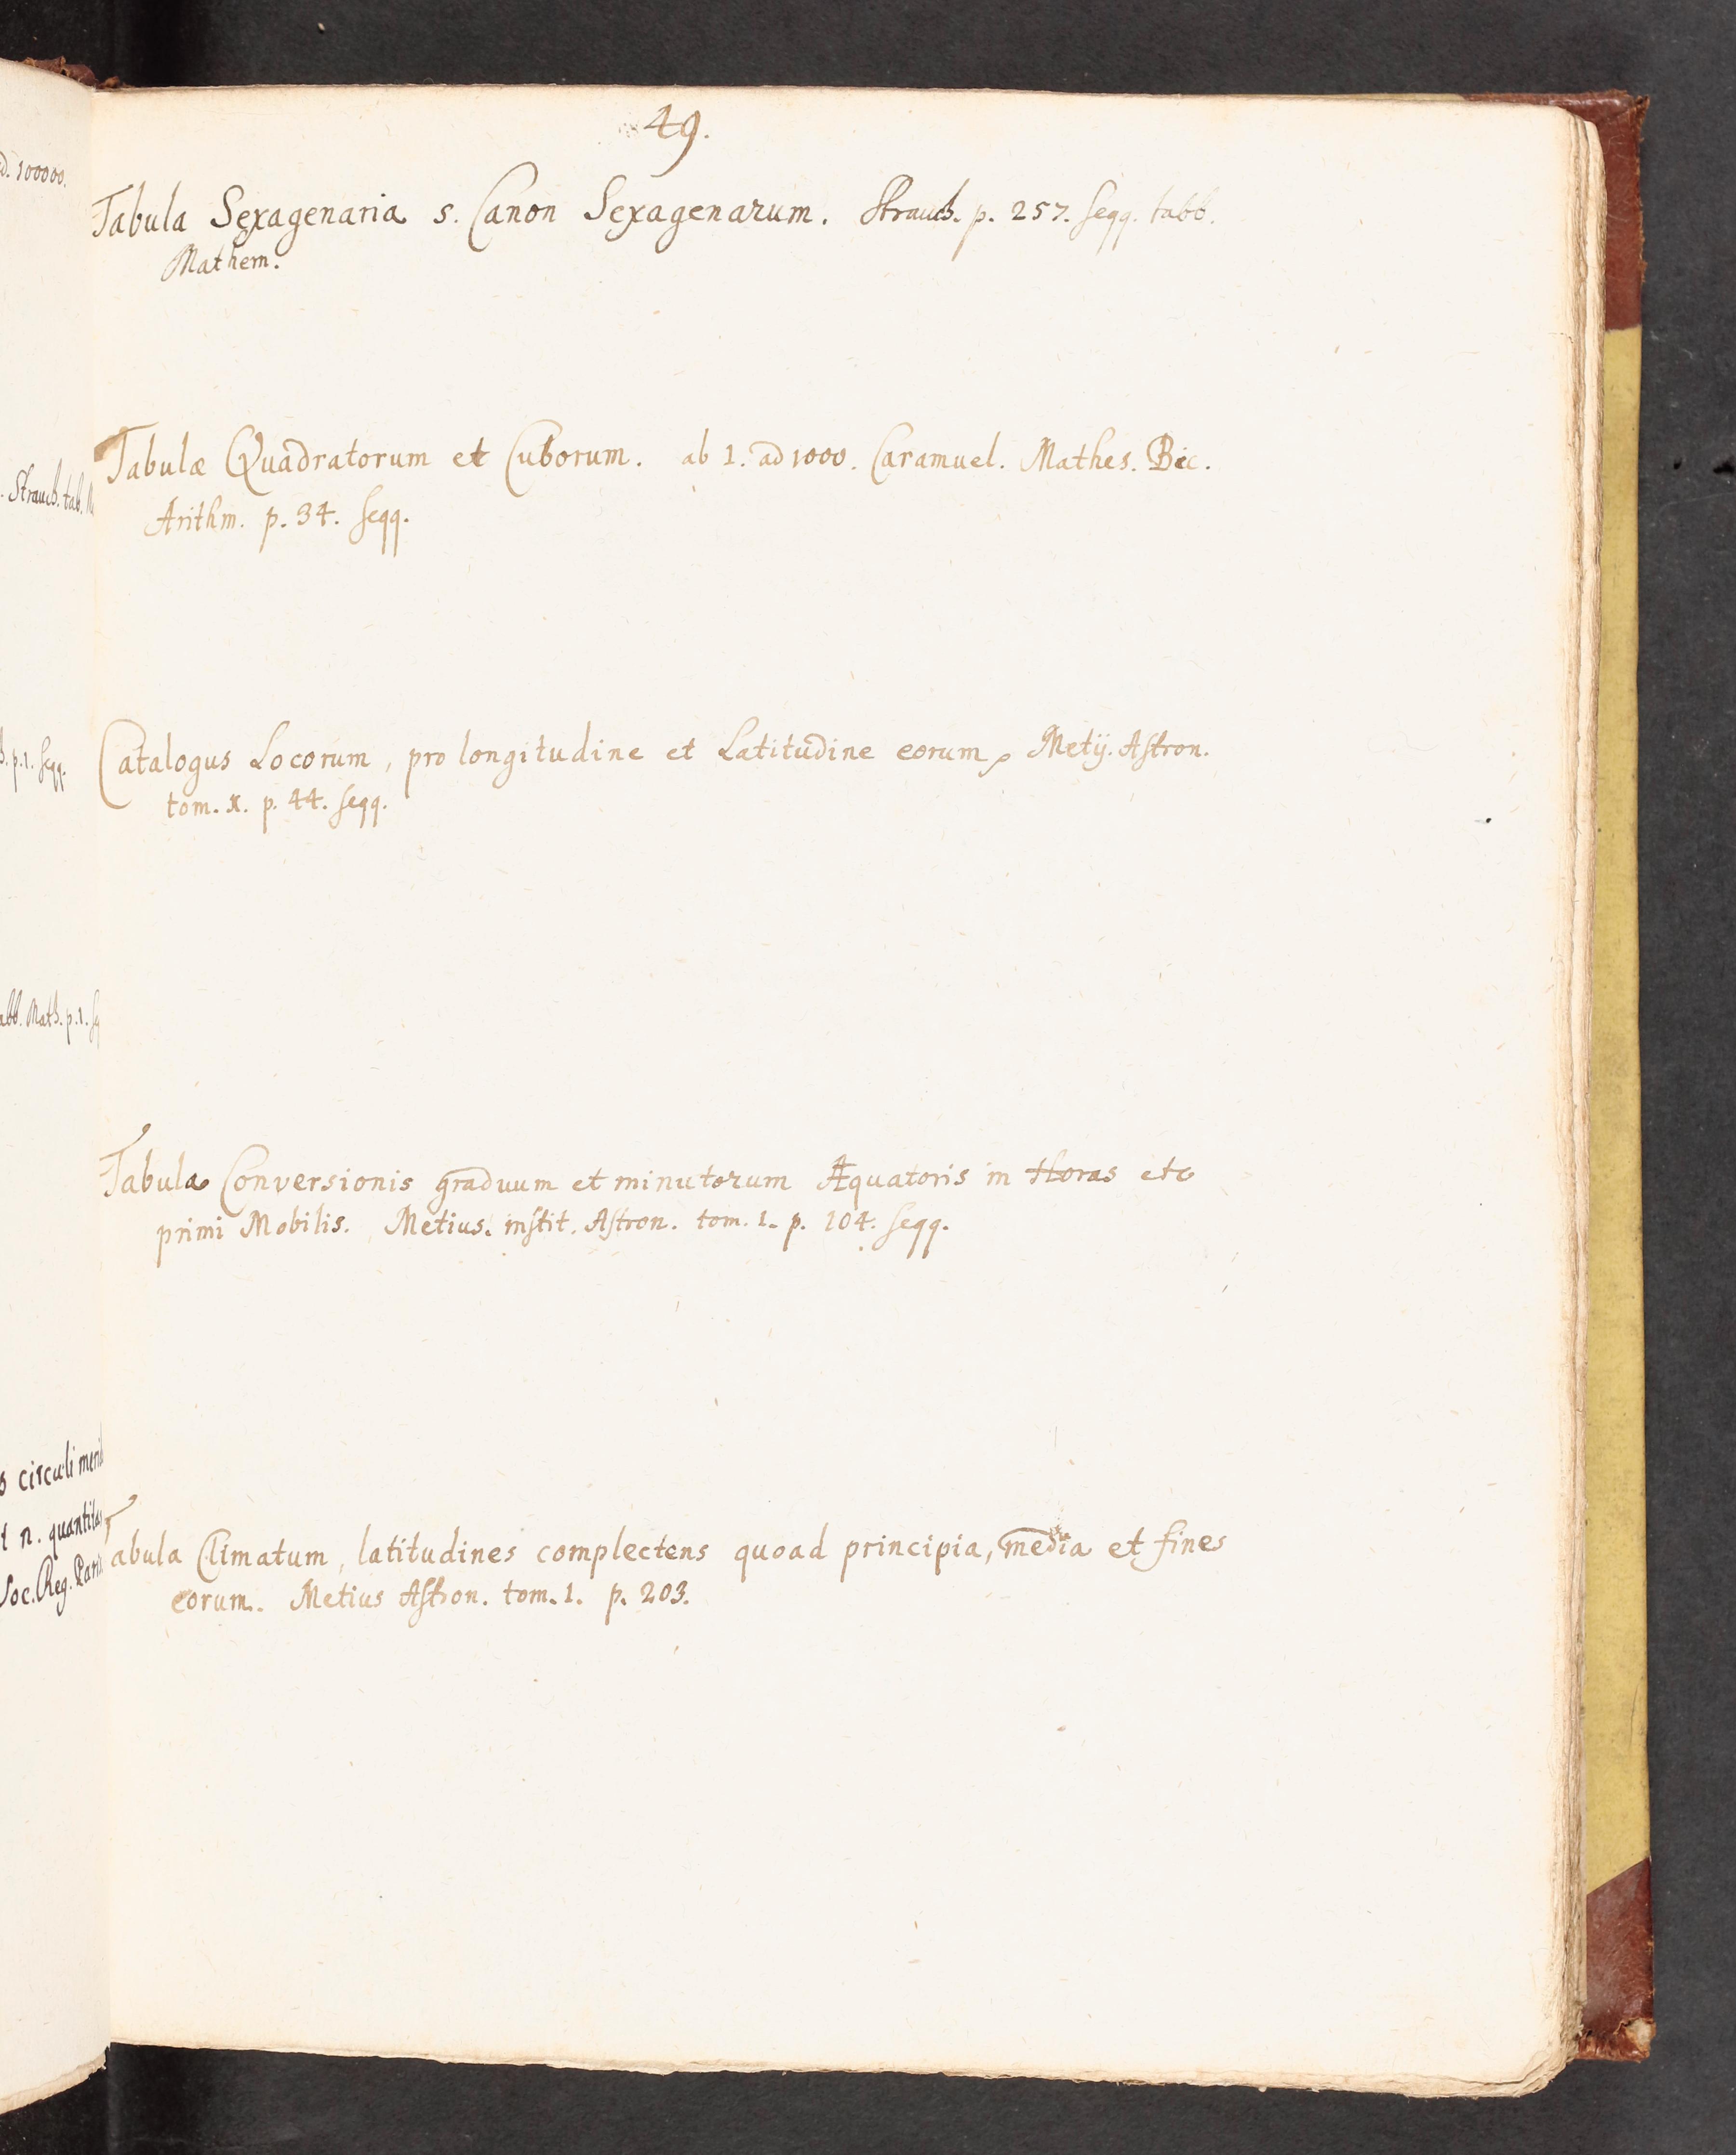 49.
Tabula Sexagenaria s. Canon Sexagenarum. Strauch. p. 257. seqq. tabb.
Mathem.
Tabulæ Quadratorum et Cuborum. ab 1. ad 1000. Caramuel. Mathes. Bic.
Arithm. p. 34. seqq.
Catalogus Locorum, pro longitudine et Latitudine eorum, Metij. Astron.
tom. 1. p. 44. seqq.
Tabula Conversionis graduum et minutorum Æquatoris in Horas etc
primi Mobilis. Metius. instit. Astron. tom. 1. p. 104. seqq.
Tabula Climatum, latitudines complectens quoad principia, media et fines
eorum. Metius Astron. tom. 1. p. 203.
d. 100000.
. Strauch. tab.
p. 1. seqq.
abb. Math. p. 1.
circuli
n. quantitas
Soc. Reg.